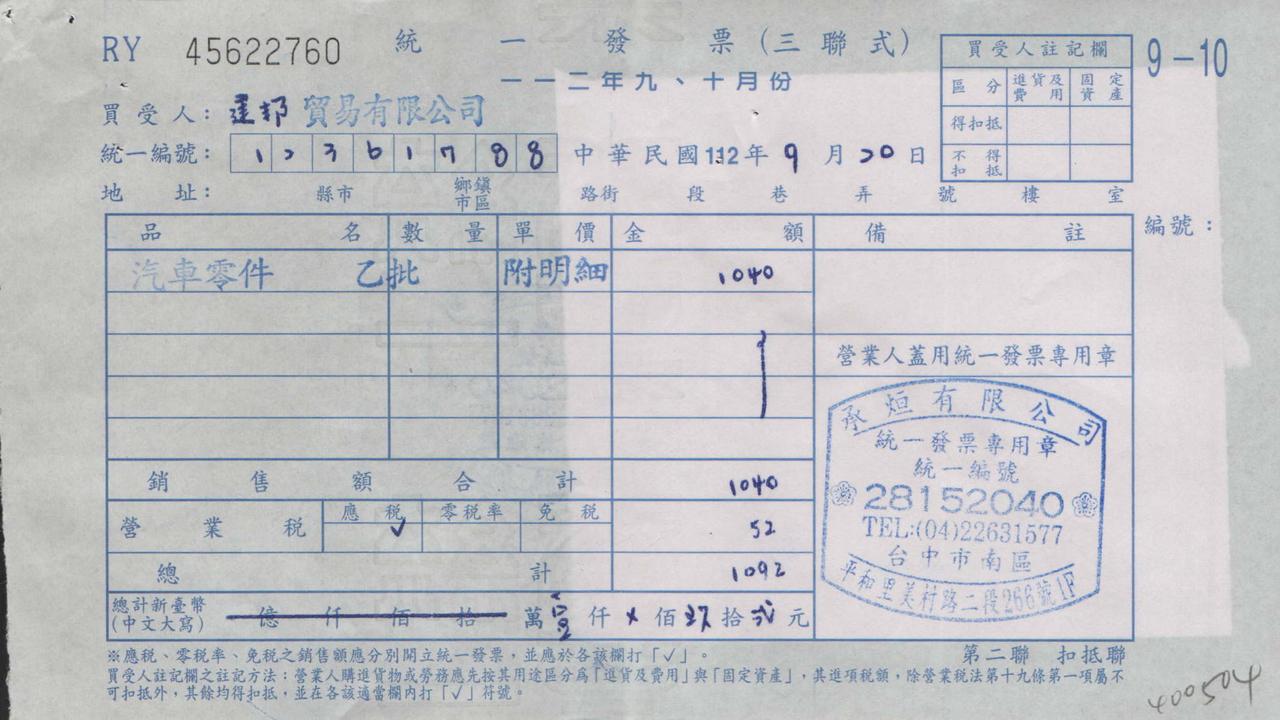 RY 45622760 統一發票(三聯式)
一一二年九、十月份
9-10
買受人註記欄
區分 進貨及費用 固定資產
得扣抵
不得扣抵
買受人: 建邦 貿易有限公司
統一編號: 12361788 中華民國112年9月20日
地址: 縣市 鄉鎮市區 路街 段 巷 弄 號 樓 室
編號:
品名 數量 單價 金額 備註
汽車零件 乙批 附明細 1040
營業人蓋用統一發票專用章
銷售額合計 1040
營業稅 應稅 零稅率 免稅 52
✓
總計 1092
總計新臺幣(中文大寫) 億 仟 佰 拾 萬 壹 仟 × 佰 玖 拾 貳 元
承烜有限公司
統一發票專用章
統一編號
28152040
TEL:(04)22631577
台中市南區
平和里美村路二段266號1F
※應稅、零稅率、免稅之銷售額應分別開立統一發票,並應於各該欄打「✓」。
第二聯 扣抵聯
買受人註記欄之註記方法:營業人購進貨物或勞務應先按其用途區分為「進貨及費用」與「固定資產」,其進項稅額,除營業稅法第十九條第一項屬不
可扣抵外,其餘均得扣抵,並在各該適當欄內打「✓」符號。
400504